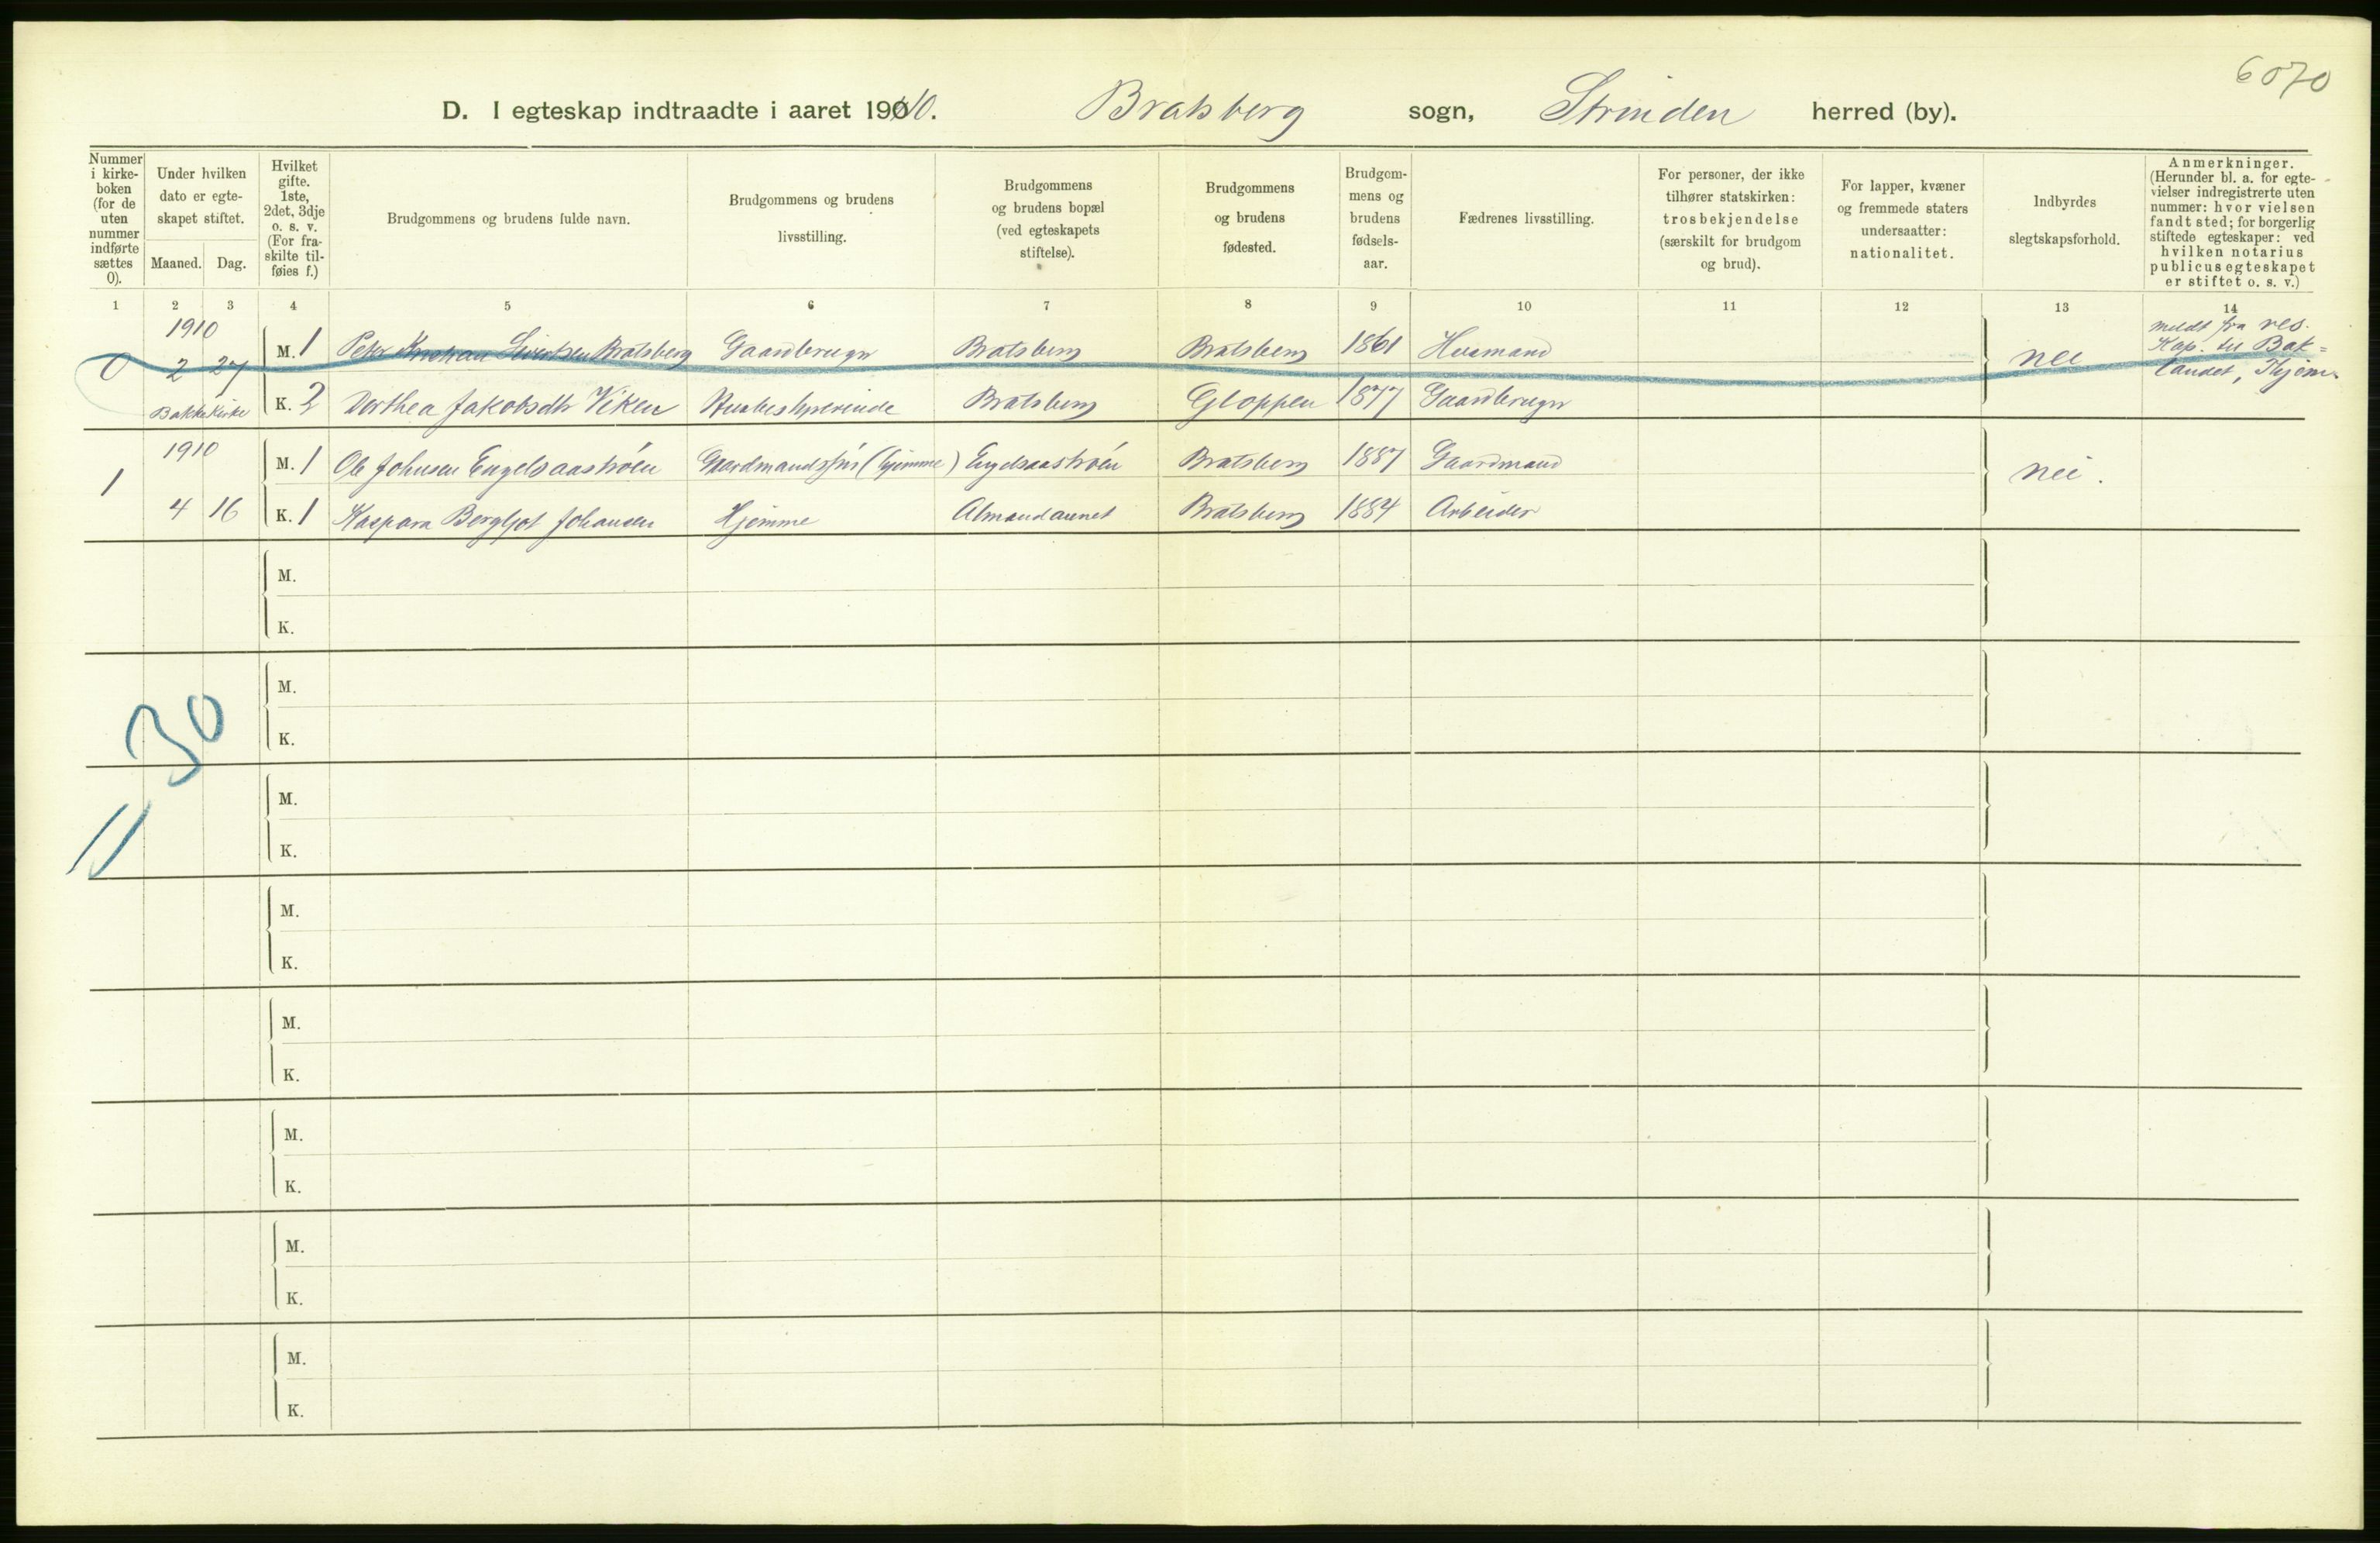 6070
D. I egteskap indtraadte i aaret 1910. Bratsberg sogn, Strinden herred (by).
Nummer i kirkeboken (for de uten nummer indførte sættes 0).
Under hvilken dato er egteskapet stiftet.
Maaned. Dag.
Hvilket gifte. 1ste, 2det, 3dje o. s. v. (For fraskilte tilføies f.)
Brudgommens og brudens fulde navn.
Brudgommens og brudens livsstilling.
Brudgommens og brudens bopæl (ved egteskapets stiftelse).
Brudgommens og brudens fødested.
Brudgommens og brudens fødselsaar.
Fædrenes livsstilling.
For personer, der ikke tilhører statskirken: trosbekjendelse (særskilt for brudgom og brud).
For lapper, kvæner og fremmede staters undersaatter: nationalitet.
Indbyrdes slegtskapsforhold.
Anmerkninger. (Herunder bl. a. for egtevielser indregistrerte uten nummer: hvor vielsen fandt sted; for borgerlig stiftede egteskaper: ved hvilken notarius publicus egteskapet er stiftet o. s. v.)
1 2 3 4 5 6 7 8 9 10 11 12 13 14
1910
0 2 27 M. 1 Peter Kristian Sivertsen Bratsberg Gaardbruger Bratsberg Bratsberg 1861 Husmand nei meldt fra res. Kap. til Baklandet, Thjem.
Bakke Kirke K. 2 Dorthea Jakobsdtr Viken Husbestyrerinde Bratsberg Gloppen 1877 Gaardbruger
1910
1 M. 1 Ole Johnsen Engelsaastrøen Gaardmandssøn (hjemme) Engelsaastrøen Bratsberg 1887 Gaardmand nei.
4 16 K. 1 Kaspara Bergljot Johansen Hjemme Almandaunet Bratsberg 1884 Arbeider
M.
K.
M.
K.
30
M.
K.
11
M.
K.
M.
K.
M.
K.
M.
K.
M.
K.